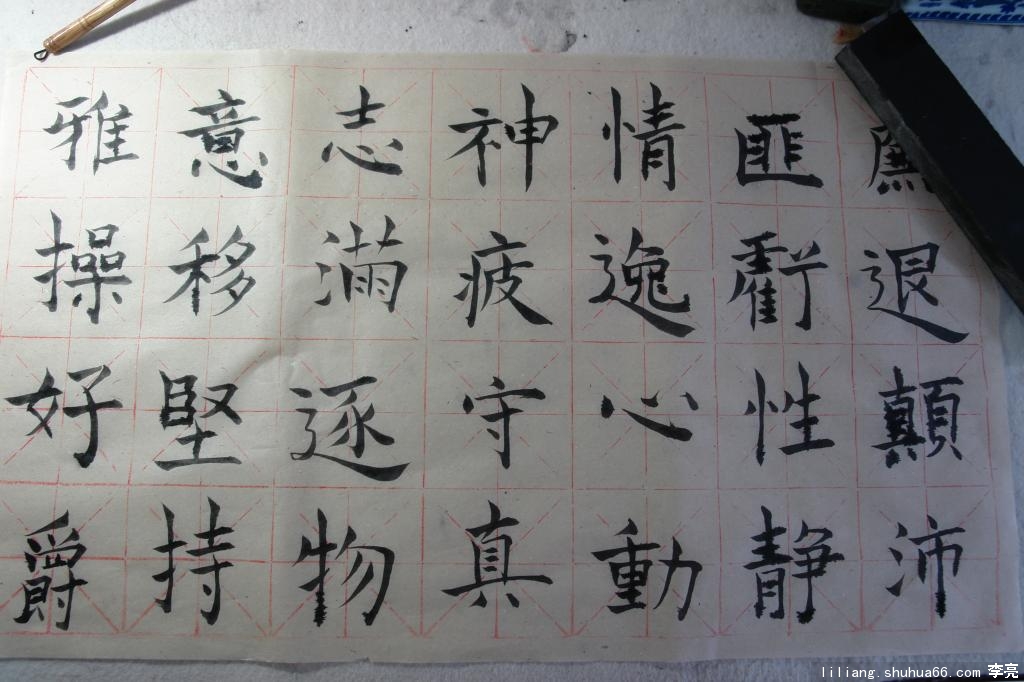 廉退顛沛
匪虧性靜
情逸心動
神疲守真
志滿逐物
意移堅持
雅操好爵
liliang.shuhua66.com 李亮